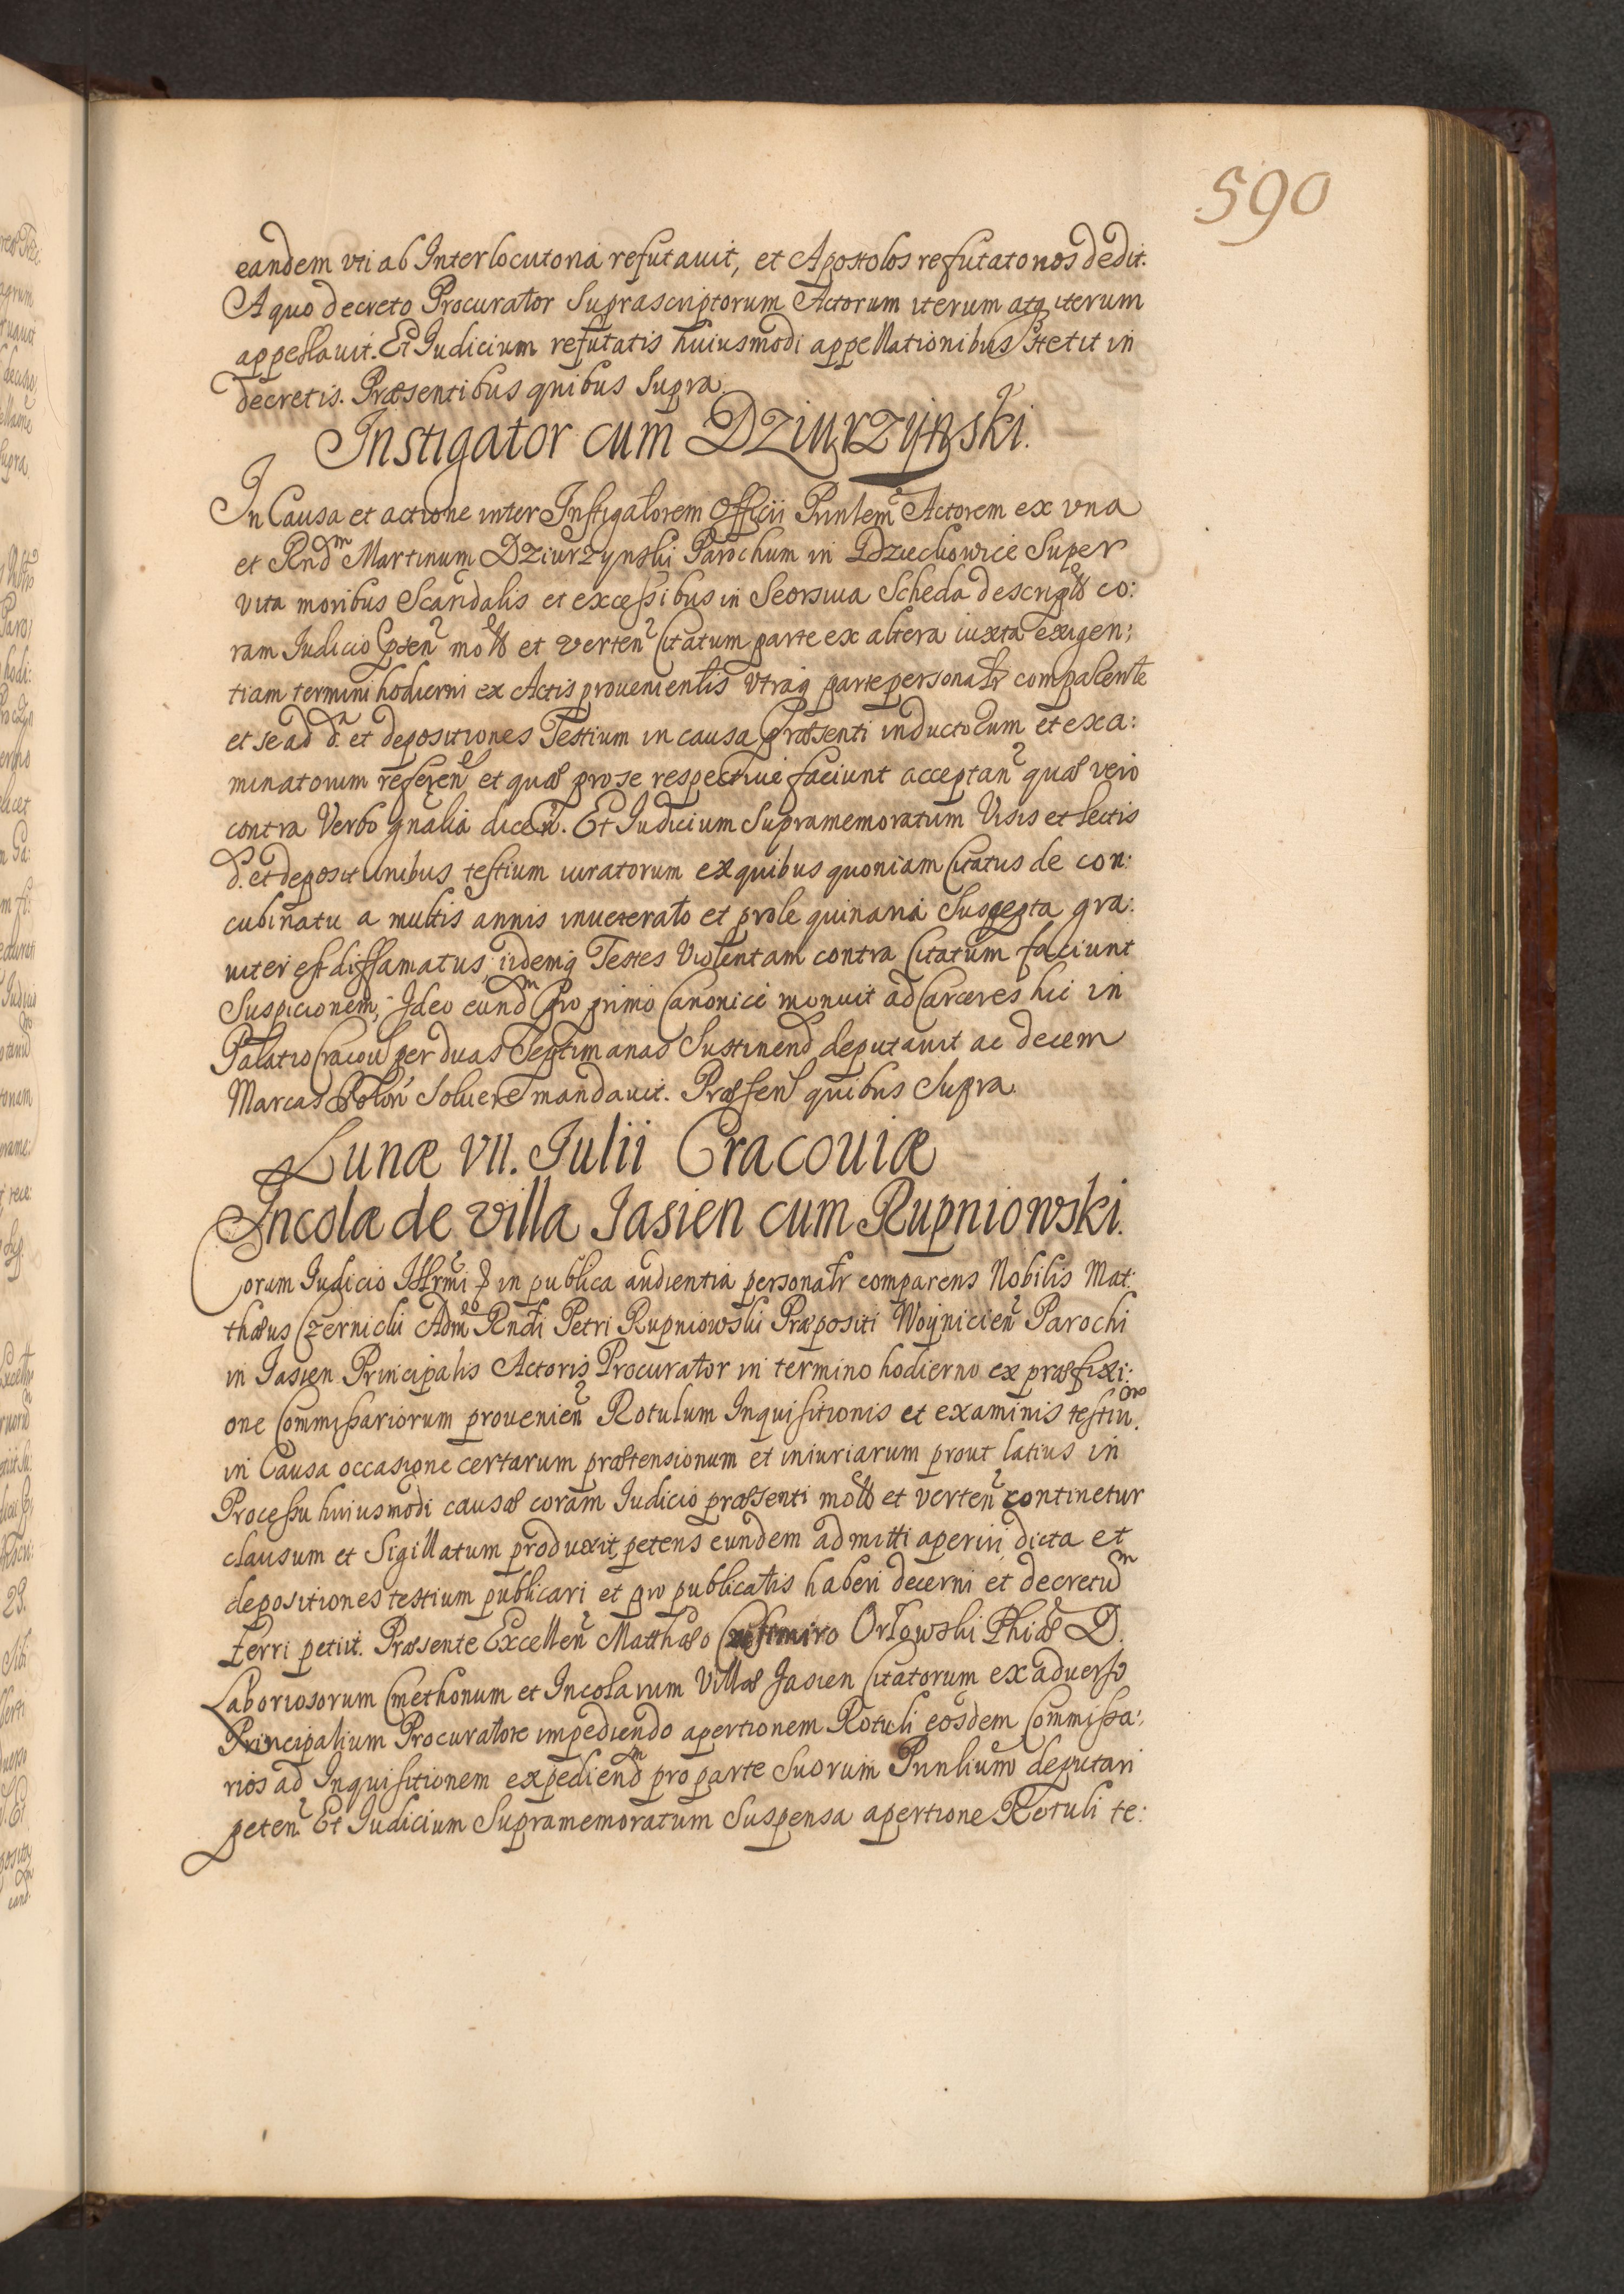 590
eandem vti ab Interlocutoria refutauit, et Apostolos refutatorios dedit.
A quo decreto Procurator Suprascriptorum Actorum iterum atq iterum
appellauit. Et Iudicium refutatis huiusmodi appellationibus Stetit in
decretis. Præsentibus quibus Supra.
Instigator cum Dziurzyński.
In Causa et actione inter Instigatorem Officii Pnntem Actorem ex vna
et Rndm Martinum Dziurzynski Parochum in Dziechowice Super
vita moribus Scandalis et excessibus in Seorsiua Scheda descript co:
ram Iudicio pnten mot et verten Citatum parte ex altera iuxta exigen:
tiam termini hodierni ex Actis prouenientis vtraq parte personalr comparente
et se ad d.a et depositiones Testium in causa præsenti inductorum et exa:
minatorum referen et quæ pro se respectiue faciunt acceptan quæ vero
contra Verbo gnalia dicen. Et Iudicium Supramemoratum Visis et lectis
d. et depositionibus testium iuratorum ex quibus quoniam Citatus de con:
cubinatu a multis annis inueterato et prole quinaria Suscepta gra:
uiter est diffamatus, iidemq Testes Violentam contra Citatum faciunt
Suspicionem, Ideo eundm pro primo Canonicè monuit ad Carceres hic in
Palatio Cracou per duas Septimanas Sustinend deputauit ac decem
Marcas Polon Soluere mandauit. Præsen quibus Supra.
Lunæ VII. Iulii Cracouiæ
Incolæ de villa Iasien cum Rupniowski.
Coram Iudicio Illrmi in publica audientia personalr comparens Nobilis Mat:
thæus Czernicki Adm Rndi Petri Rupniowski Præpositi Woynicien Parochi
in Iasien Principalis Actoris Procurator in termino hodierno ex præfixi:
one Commissariorum prouenien Rotulum Inquisitionis et examinis testiu.
in Causa occasione certarum prætensionum et iniuriarum prout latius in
Processu huiusmodi causæ coram Iudicio præsenti mot et verten continetur
clausum et Sigillatum produxit, petens eundem admitti aperiri, dicta et
depositiones testium publicari et pro publicatis haberi decerni et decretum
ferri petiit. Præsente Excellen Matthæo Casimiro Orłowski Phiæ D.
Laboriosorum Cmethonum et Incolarum Villæ Jasien Citatorum ex aduerso
Principalium Procuratore impediendo apertionem Rotuli eosdem Commissa:
rios ad Inquisitionem expediendm pro parte Suorum Pnnlium deputari
peten. Et Iudicium Supramemoratum Suspensa apertione Rotuli te: